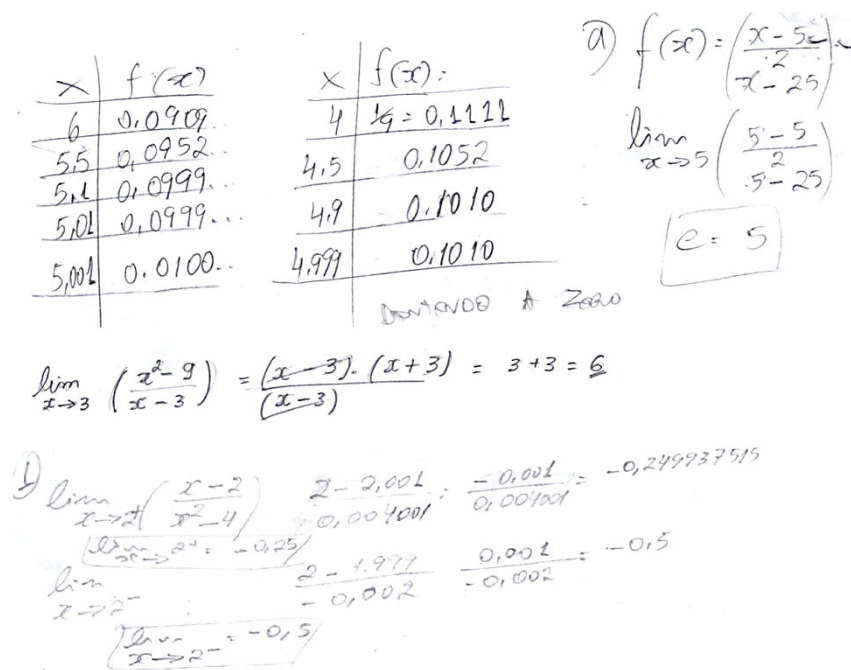 x | f(x)
6 | 0.0909..
5,5 | 0,0952..
5,1 | 0,0999..
5,01 | 0,0999...
5,001 | 0.0100..
x | f(x):
4 | 1/9 = 0,1111
4,5 | 0,1052
4,9 | 0.1010
4,999 | 0.1010
A ZERO
a) f(x) = (x - 5 / x² - 25)
lim x→5 (5 - 5 / 5² - 25)
e = 5
lim x→3 (x² - 9 / x - 3) = (x - 3). (x + 3) / (x - 3) = 3 + 3 = 6
lim x→2⁺ (x - 2 / x² - 4) 2 - 2,001 / 0,004001 = -0,001 / 0,004001 = -0,249937515
lim x→2⁺ = -0,25
lim x→2⁻ 2 - 1.999 / -0,002 0,001 / -0,002 = -0,5
lim x→2⁻ = -0,5